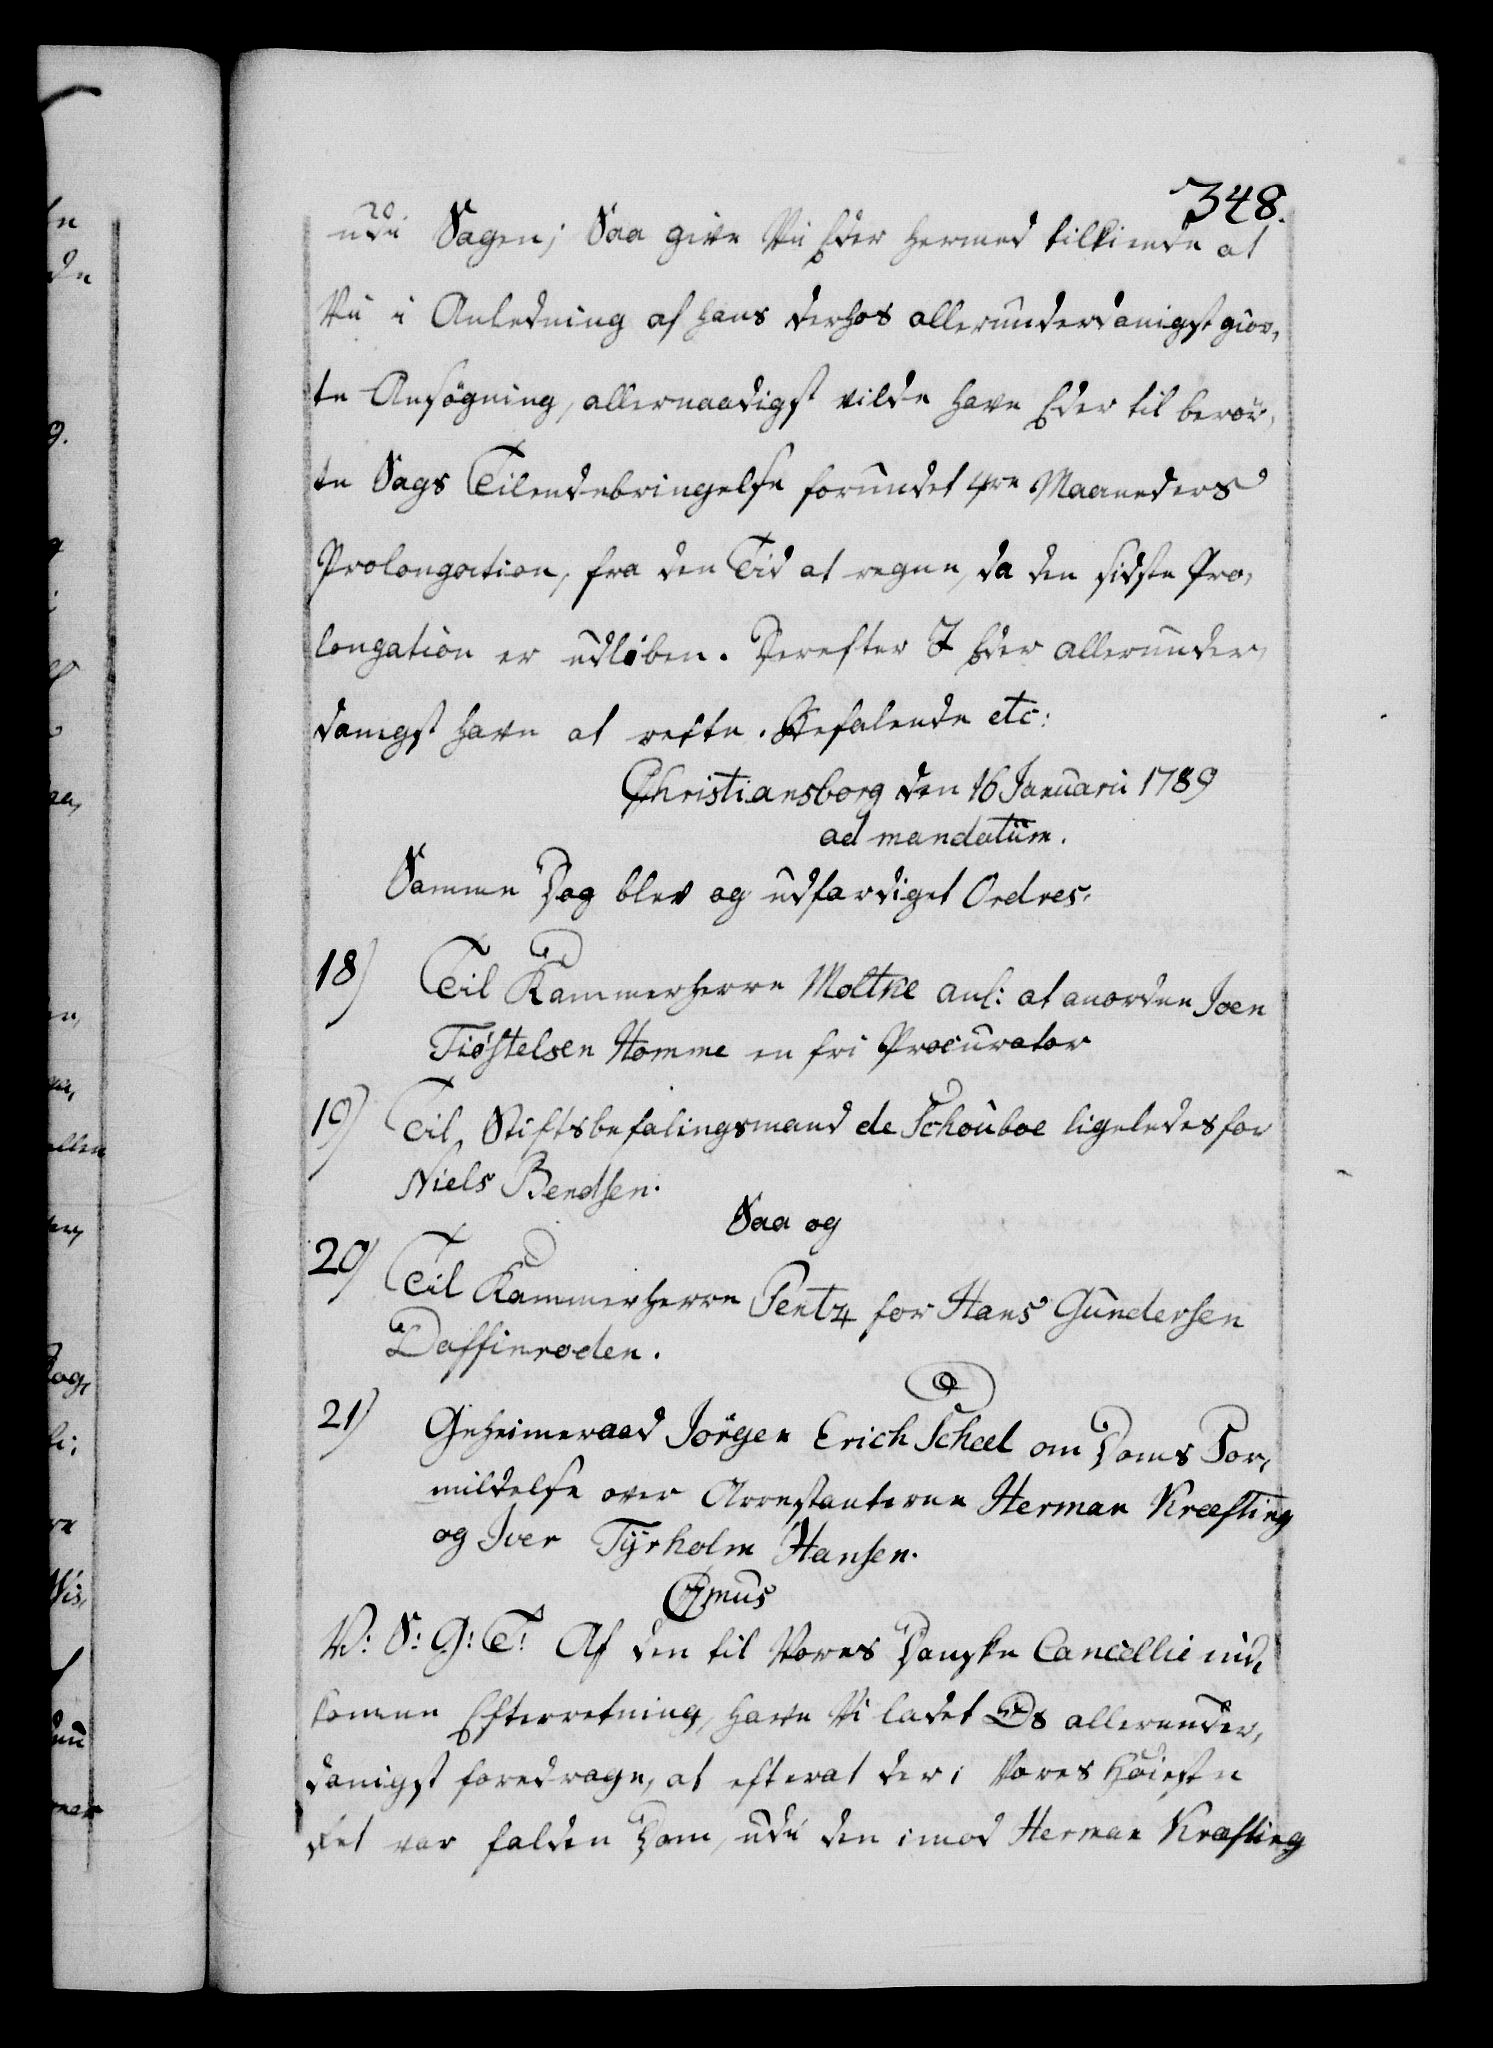 348.
udi Sagen; Saa give Vii Eder hermed tilkiende at
Vii i Anledning af hans derhos allerunderdanigst gior,
te Ansøgning, allernaadigst vilde have Eder til berør,
te Sags Tilendebringelse forundet 4re Maaneders
Prolongation, fra den Tid at regne, da den sidste Pro,
longation er udløben. Derefter I Eder allerunder,
danigst have at rette. Befalende etc:
Christiansborg den 16 Januarii 1789
ad mandatum.
Samme Dag blev og udfærdiget Ordres.
18) Til Kammerherre Moltke anl: at anordne Joen
Tiøstelsen Homme en fri Procurator
19) Til Stiftsbefalingsmand de Schouboe ligeledes for
Niels Bendsen.
Saa og
20) Til Kammerherre Pentz for Hans Gundersen
Daffinroden.
21) Geheimeraad Jörgen Erich Scheel om Doms For,
mildelse over Arrestanterne Herman Kræfting
og Iver Tyrholm Hansen.
C7mus
V: S: G: T: Af den til Vores Danske Cancellie ind,
komne Efterretning, have Vi ladet Os allerunder,
danigst foredrage, at efterat der i Vores Høieste
Ret var falden Dom, udi den imod Herman Kræfting